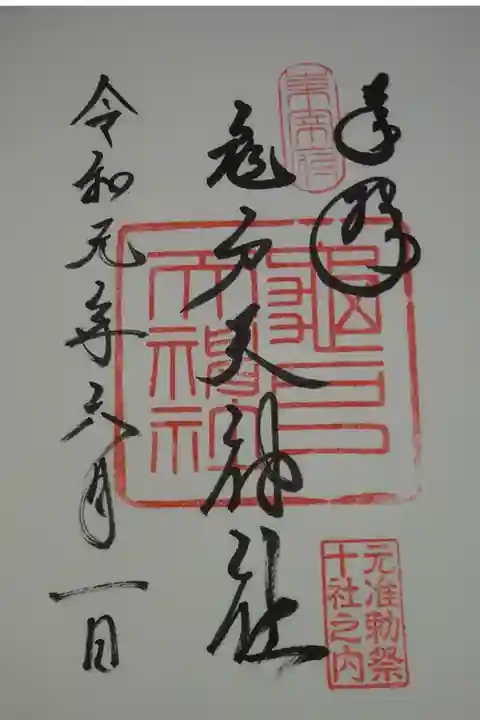 奉拝
亀戸天神社
令和元年六月一日
亀戸
天神社
元准勅祭
十社之内